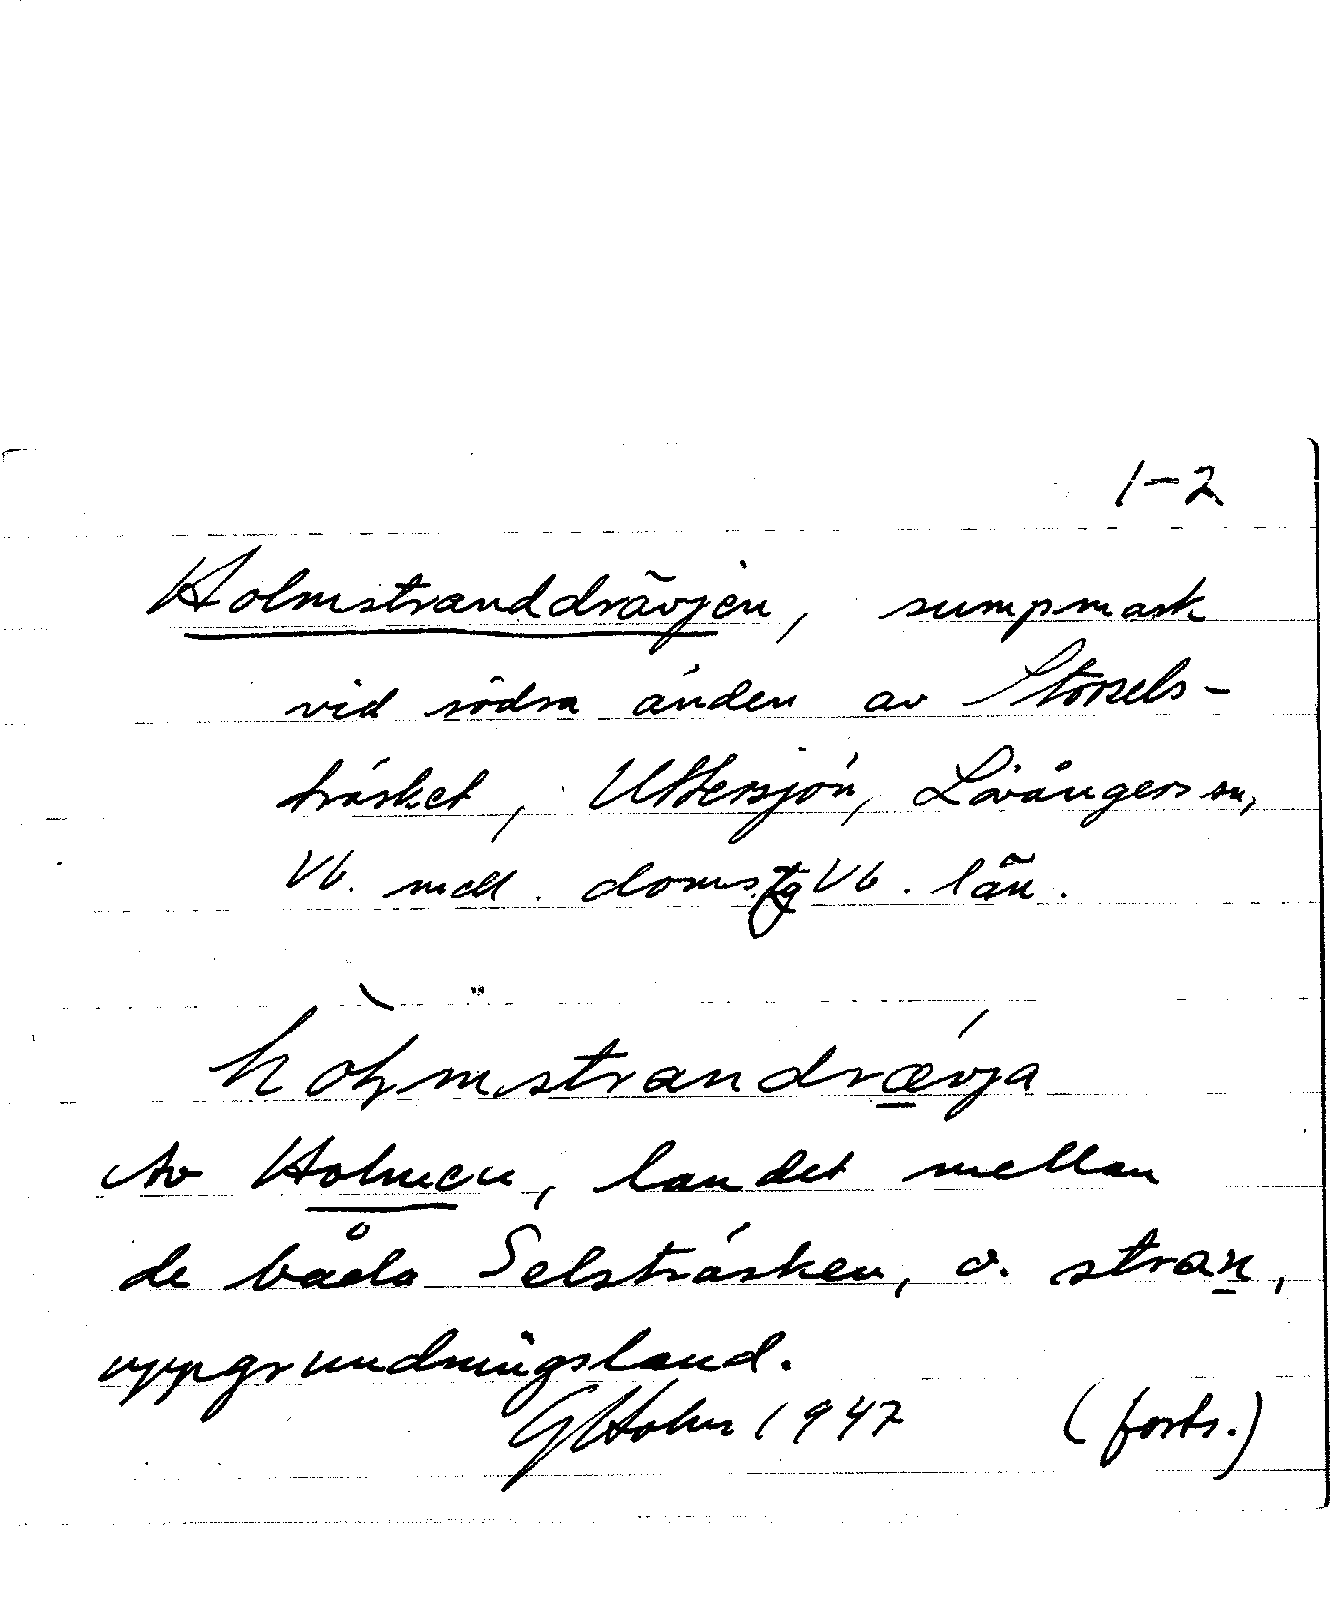 1-2
Holmstranddrävjen, sumpmark
vid södra änden av Storsels-
träsket, Uttersjön, Lövångers sn,
Vb. mell. doms.tg Vb. län.
hòḷmstrandrævja
Av Holmen, landet mellan
de båda Selsträsken, o. stran,
uppgrundningsland.
G Holm 1947 (forts.)